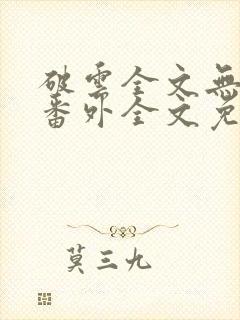 破雲全文無
番外全文免
莫三九